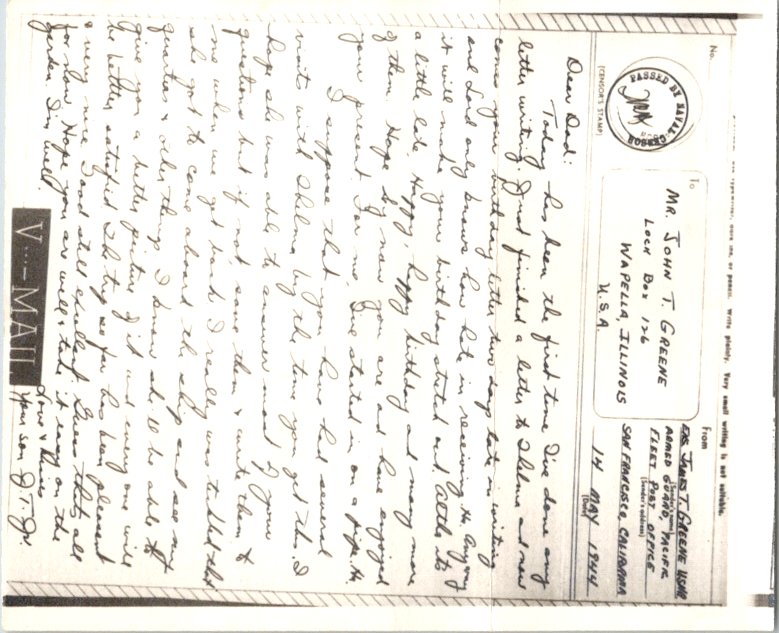 No.
ink, or pencil. Write plainly. Very small writing is not suitable.
PASSED BY NAVAL CENSOR
(CENSOR'S STAMP)
To
MR. JOHN T. GREENE
LOCK BOX 126
WAPELLA ILLINOIS
U.S.A.
From
ENS JAMES T GREENE USNR
(Sender's name)
ARMED GUARD, PACIFIC
(Sender's address)
FLEET POST OFFICE
SAN FRANCISCO, CALIFORNIA
14 MAY 1944
(Date)
Dear Dad:
Today has been the first time I've done any
letter writing. Just finished a letter to Thelma and now
comes your birthday letter two days late in writing
and Lord only knows how late in receiving it. Anyway
it will make your birthday stretch out. Altho its
a little late, Happy, happy birthday and many more
of them. Hope by now you are and have enjoyed
your present. For me, I've started in on a pipe. Ha.
I suppose that you have had several
visits with Thelma by the time you get this. I
hope she was able to answer most of your
questions but if not, save them & write them to
me when we get back. I really was tickled that
she got to come aboard the ship and see my
quarters & other things. I know she'll be able to
give you a better picture of it and everyone will
be better satisfied. The trip so far has been pleasant
& very nice. Food still excellent. Guess thats all
for now. Hope you are well & take it easy on the
garden. I'm well.
Love &
Your son J.T. Jr.
V···—MAIL